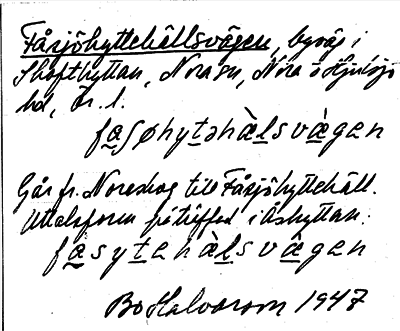 Fåsjöhyttehällsvägen, byväg i
Skofthyttan, Nora sn, Nora o Hjulsjö
bd, Ör. l.
fa̲ʃøhyt̲əhàl̲svà̲gen
Går fr. till Fåsjöhyttehäll.
Uttalsform påträffad i Åshyttan:
fa̲syt̲ehàl̲svä̲gen
Bo Halvarson 1947